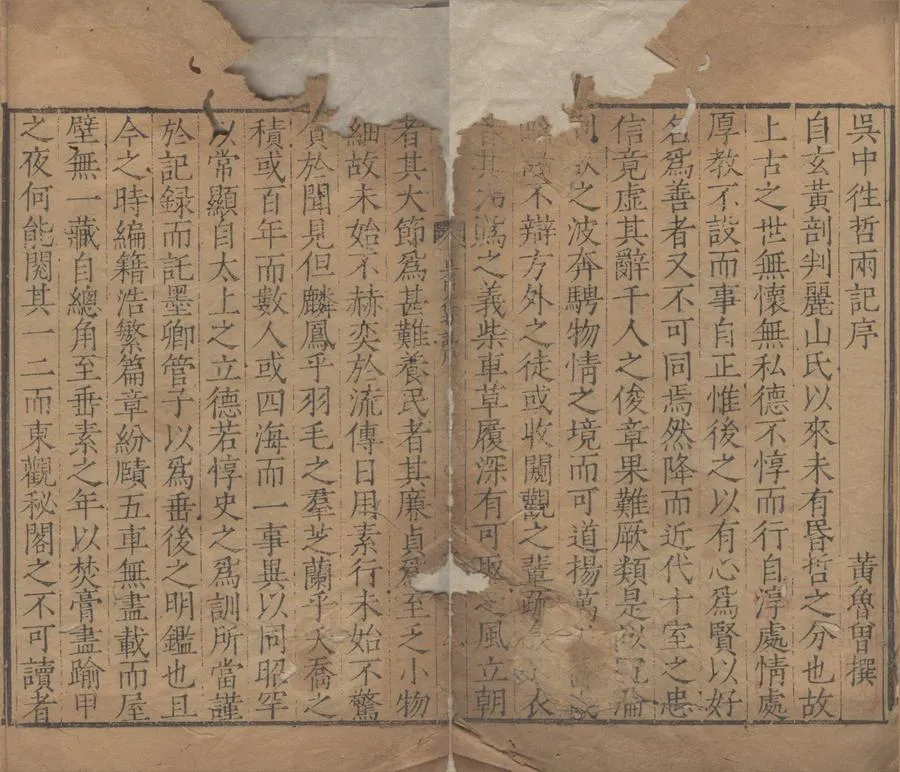 吳中徃哲兩記序
黃魯曾撰
自玄黃剖判麗山氏以來未有昬哲之分也故
上古之世無懷無私德不惇而行自淳處情處
厚教不設而事自正惟後之以有心爲賢以好
名爲善者又不可同焉然降而近代十室之忠
信竟虛其辭千人之俊章果難厥類是以沉淪
之波奔騁物情之境而可道揚萬
不辯方外之徒或收閥觀之輩跡衣
者其之義柴車草履深有可取之風立朝
者其大節爲甚難養民者其廉貞爲至乏小物
細故未始不赫奕於流傳日用素行未始不驚
賁於聞見但麟鳳乎羽毛之羣芝蘭乎夭喬之
積或百年而數人或四海而一事異以同昭罕
以常顯自太上之立德若惇史之爲訓所當謹
於記録而託墨卿管子以爲垂後之明鑑也且
今之時編籍浩繁篇章紛賾五車無盡載而屋
壁無一藏自總角至垂素之年以焚膏盡踰甲
之夜何能閱其一二而東觀秘閣之不可讀者